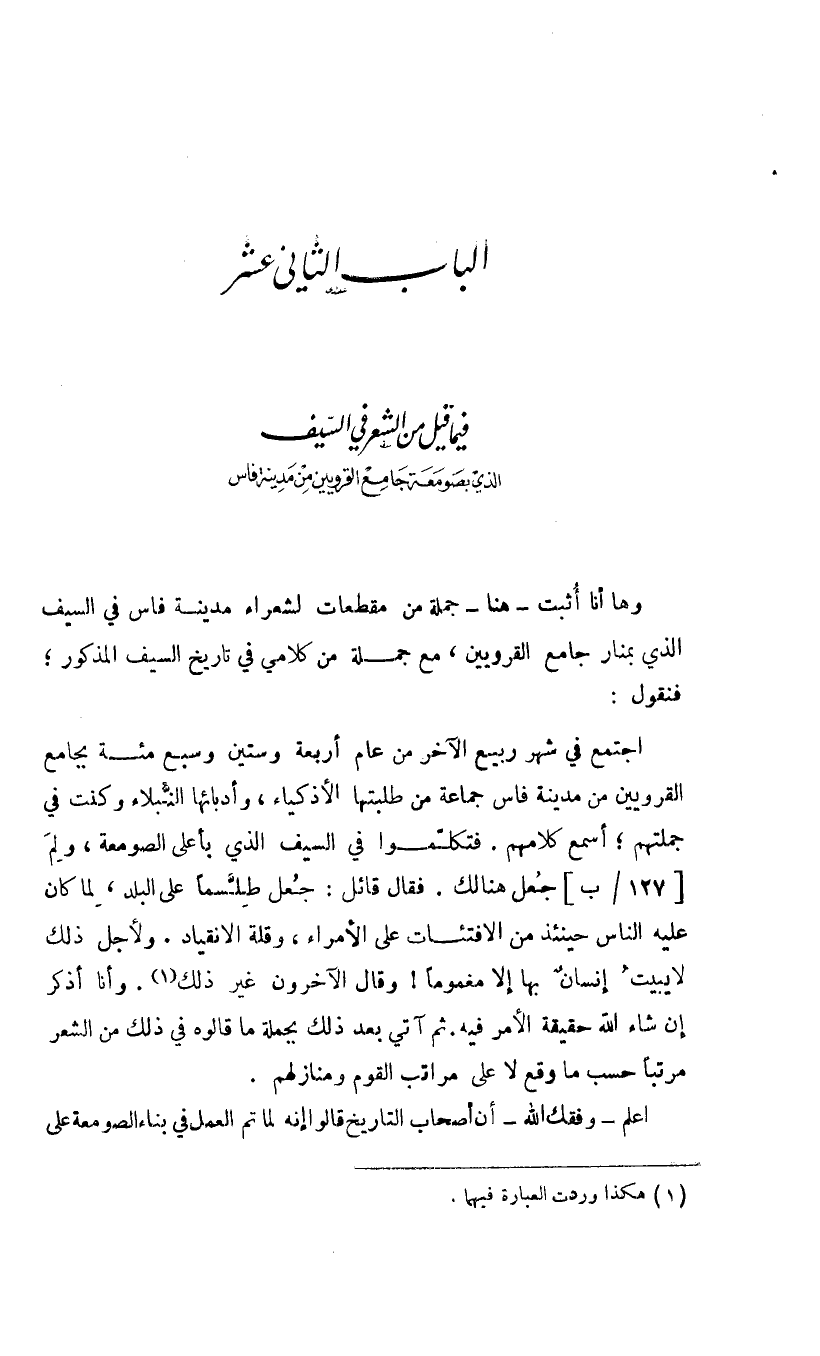 الباب الثاني عشر
فيما قيل من الشعر في السّيف
الذي بصَومَعَة جَامِع القرويين مِنْ مَدينة فاس
وها أنا أُثبت - هنا - جملة من مقطعات لشعراء مدينة فاس في السيف
الذي بمنار جامع القرويين ، مع جملة من كلامي في تاريخ السيف المذكور ؛
فنقول :
اجتمع في شهر ربيع الآخر من عام أربعة وستين وسبع مئة بجامع
القرويين من مدينة فاس جماعة من طلبتها الأذكياء ، وأدبائها النُّبلاء وكنت في
جملتهم ؛ أسمع كلامهم . فتكلّموا في السيف الذي بأعلى الصومعة ، ولِمَ
[ ١٢٧ / ب ] جُعل هنالك . فقال قائل : جُعل طِلَّسماً على البلد ، لِما كان
عليه الناس حينئذ من الافتئات على الأمراء ، وقلة الانقياد . ولأجل ذلك
لايبيتُ إنسانٌ بها إلا مغموماً ! وقال الآخرون غير ذلك(١) . وأنا أذكر
إن شاء الله حقيقة الأمر فيه. ثم آتي بعد ذلك بجملة ما قالوه في ذلك من الشعر
مرتباً حسب ما وقع لا على مراتب القوم ومنازلهم .
اعلم - وفقك الله - أن أصحاب التاريخ قالوا إنه لما تم العمل في بناء الصومعة على
(١) هكذا وردت العبارة فيها .